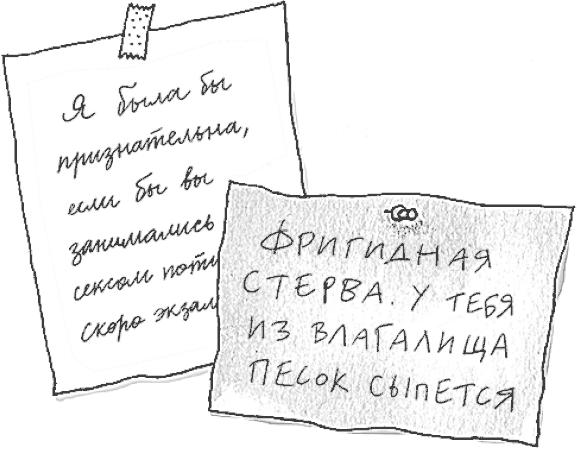 Я была бы
признательна,
если бы вы
занимались
сексом
скоро
ФРИГИДНАЯ
СТЕРВА. У ТЕБЯ
ИЗ ВЛАГАЛИЩА
ПЕСОК СЫПЕТСЯ